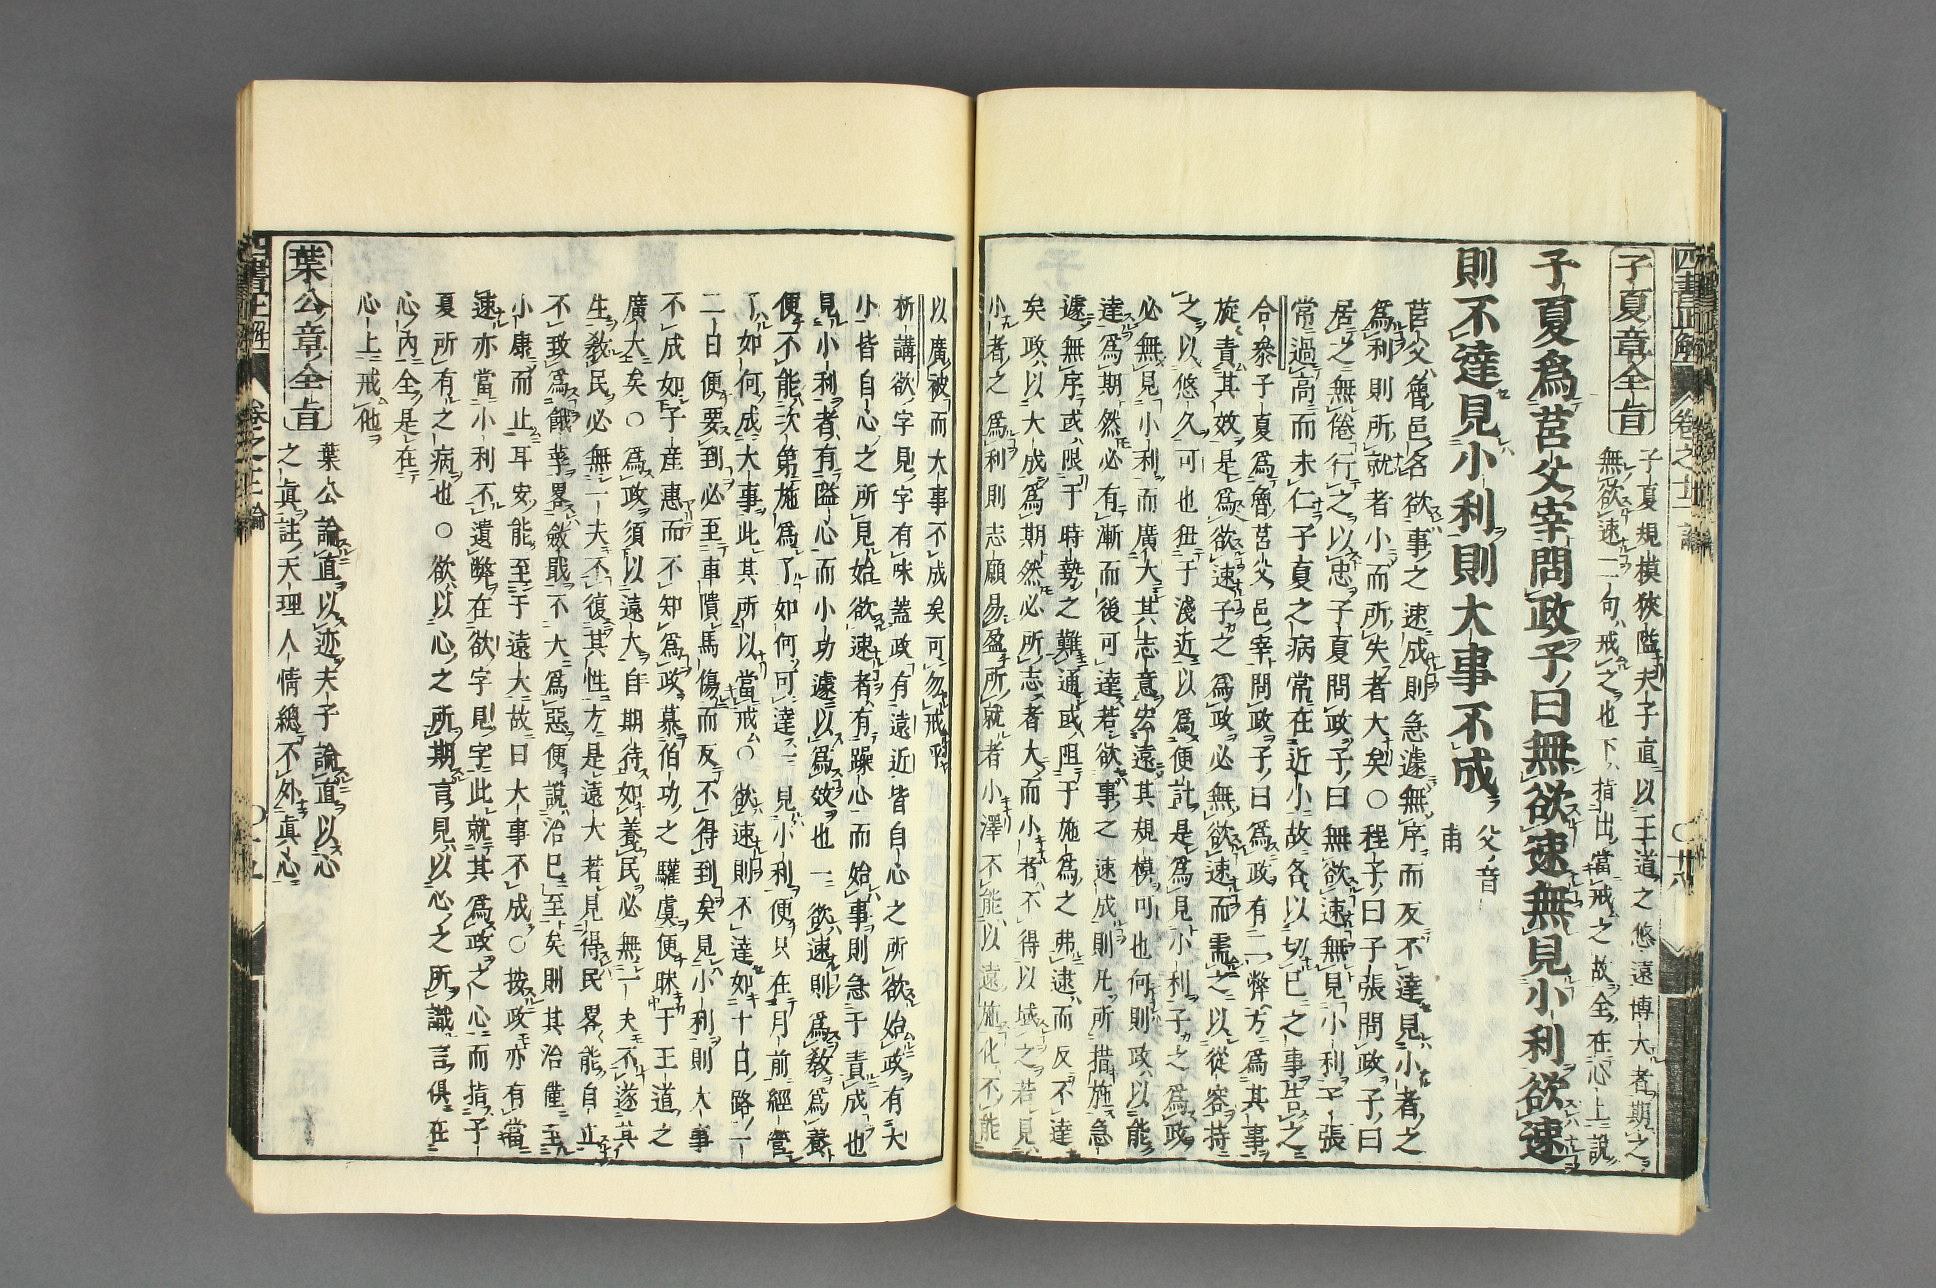 子夏章全旨
子夏規模狹隘夫子直以王道之悠遠博大者期之
無欲速二句戒之也下指出當戒之故全在心上說
子夏爲莒父宰問政子曰無欲速無見小利欲速
則不達見小利則大事不成
父音
甫
莒父魯邑名欲事之速成則急遽無序而反不達見小者之
爲利則所就者小而所失者大矣○程子曰子張問政子曰
居之無倦行之以忠子夏問政子曰無欲速無見小利子張
常過高而未仁子夏之病常在近小故各以切己之事告之
合參子夏爲魯莒父邑宰問政子曰爲政有二弊方爲其事
旋責其效是爲欲速子之爲政必無欲速而需之以從容持
之以悠久可也狃于淺近以爲便計是爲見小利子之爲政
必無見小利而廣大其志意宏遠其規模可也何則政以能
達爲期然必有漸而後可達若欲事之速成則凡所措施急
遽無序或限于時勢之難通或阻于施爲之弗逮而反不達
矣政以大成爲期然必所志者大而小者不得以域之若見
小者之爲利則志願易盈所就者小澤不能以遠施化不能
以廣被而大事不成矣可勿戒乎
析講欲字見字有味蓋政有遠近皆自心之所欲始政有大
小皆自心之所見始欲速者有躁心而始事則急于責成也
見小利者有隘心而小功遽以爲效也一欲速則爲教爲養
便不能次第施爲了如何可達一見小利便只在目前經營
了如何成大事此其所以當戒○欲速則不達如十日路一
二日便要到必至車隤馬傷而反不得到矣見小利則大事
不成如子產惠而不知爲政慕伯功之驩虞便昧于王道之
廣大矣○爲政須以遠大自期待如養民必無一夫不遂其
生教民必無一夫不復其性方是遠大若見得民畧能自止
不致爲餓莩畧斂戢不大爲惡便說治已至矣則其治僅至
小康而止耳安能至于遠大故曰大事不成○按政亦有當
速亦當小利不遺弊在欲字見字此就其爲政之心而指子
夏所有之病也○欲以心之所期言見以心之所識言俱在
心內全是在
心上戒他
葉公章全旨
葉公論直以迹夫子論直以心
之眞註天理人情總不外眞心
四書正解
卷之十一論